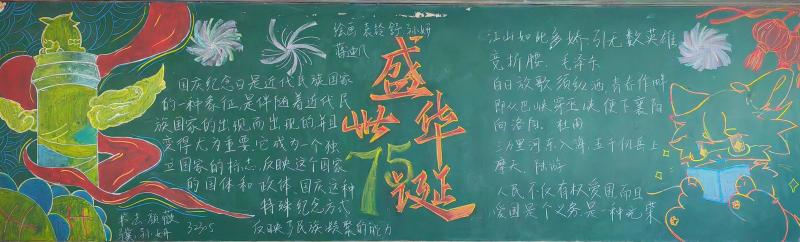 绘画 袁铃舒 孙妍
蒋迪凡
国庆纪念日是近代民族国家
的一种象征,是伴随着近代民
族国家的出现而出现的,并且
变得尤为重要,它成为一个独
立国家的标志,反映这个国家
的国体和政体,国庆这种
特殊纪念方式
反映了民族凝聚的能力
盛
世
华
75
诞
江山如此多娇,引无数英雄
竞折腰。毛泽东
白日放歌须纵酒,青春作伴
即从巴峡穿巫峡,便下襄阳
向洛阳。杜甫
三万里河东入海,五千仞岳上
摩天。陆游
人民不仅有权爱国,而且
爱国是个义务,是一种光荣